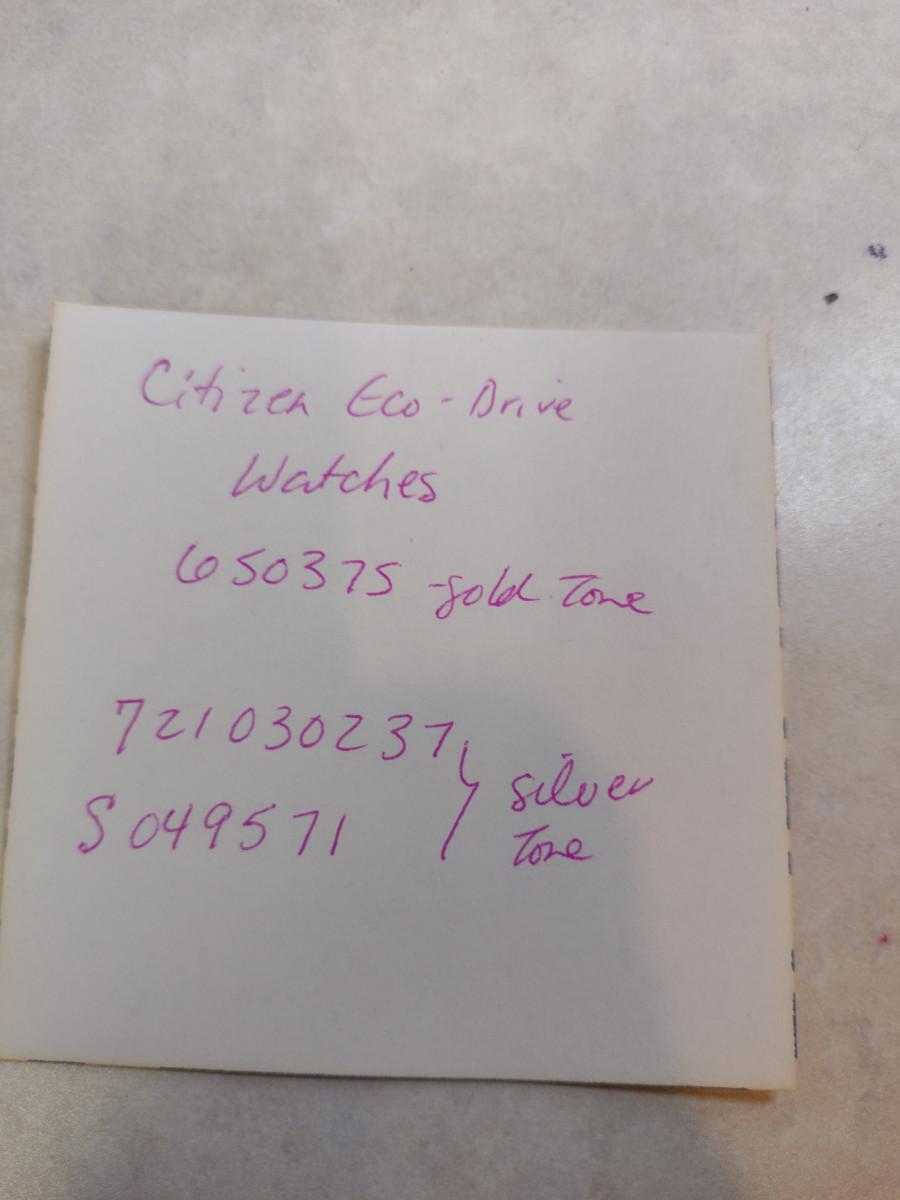 Citizen Eco-Drive
Watches
650375 -gold Tone
721030237
S049571
} silver
Tone